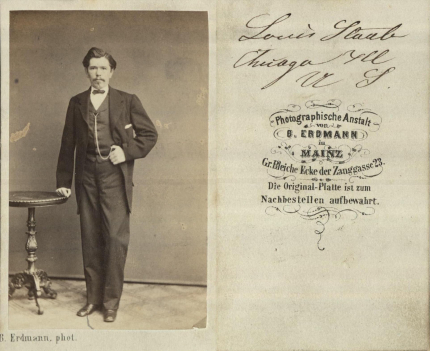 B. Erdmann, phot.
Louis Staab
Chicago Ill
U S.
Photographische Anstalt
von
B. ERDMANN
in
MAINZ
Gr. Bleiche Ecke der Zanggasse 23.
Die Original-Platte ist zum
Nachbestellen aufbewahrt.